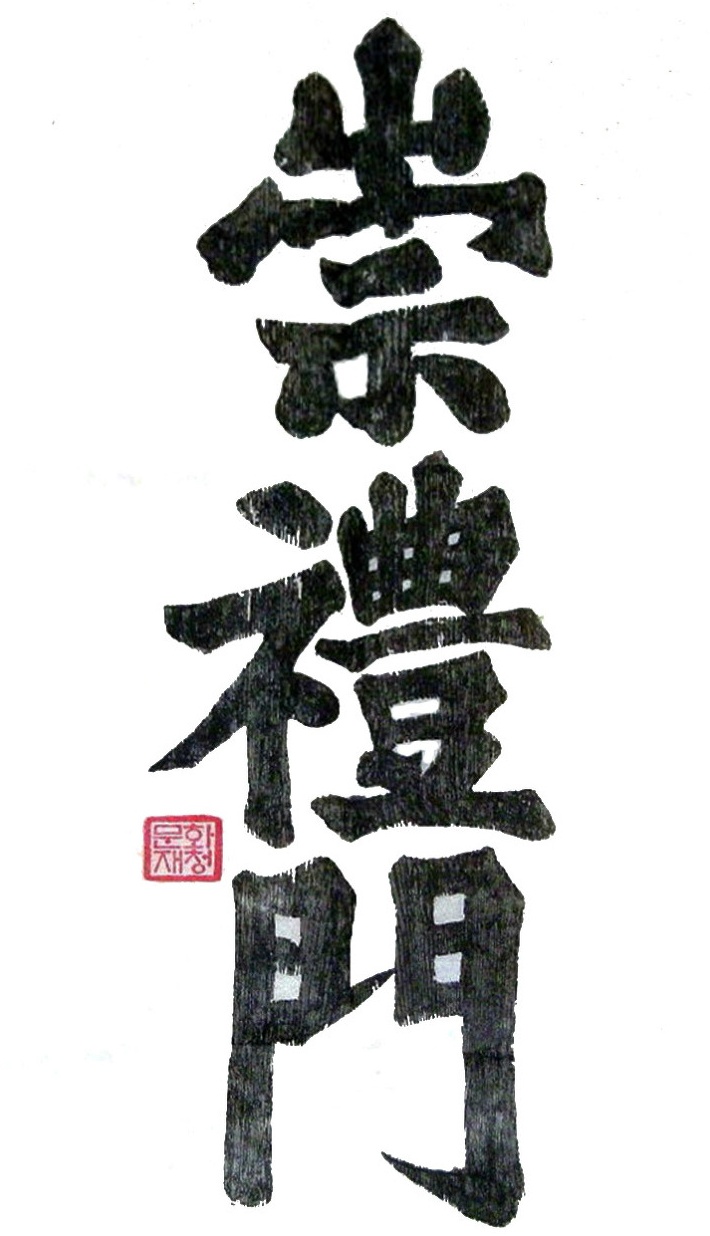 崇禮門
문화
재청